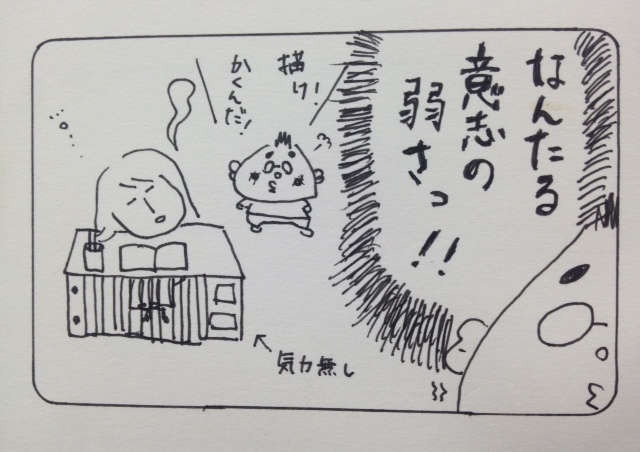 なんたる
意志の
弱さっ!!
描け!
かくんだ!
気力無し